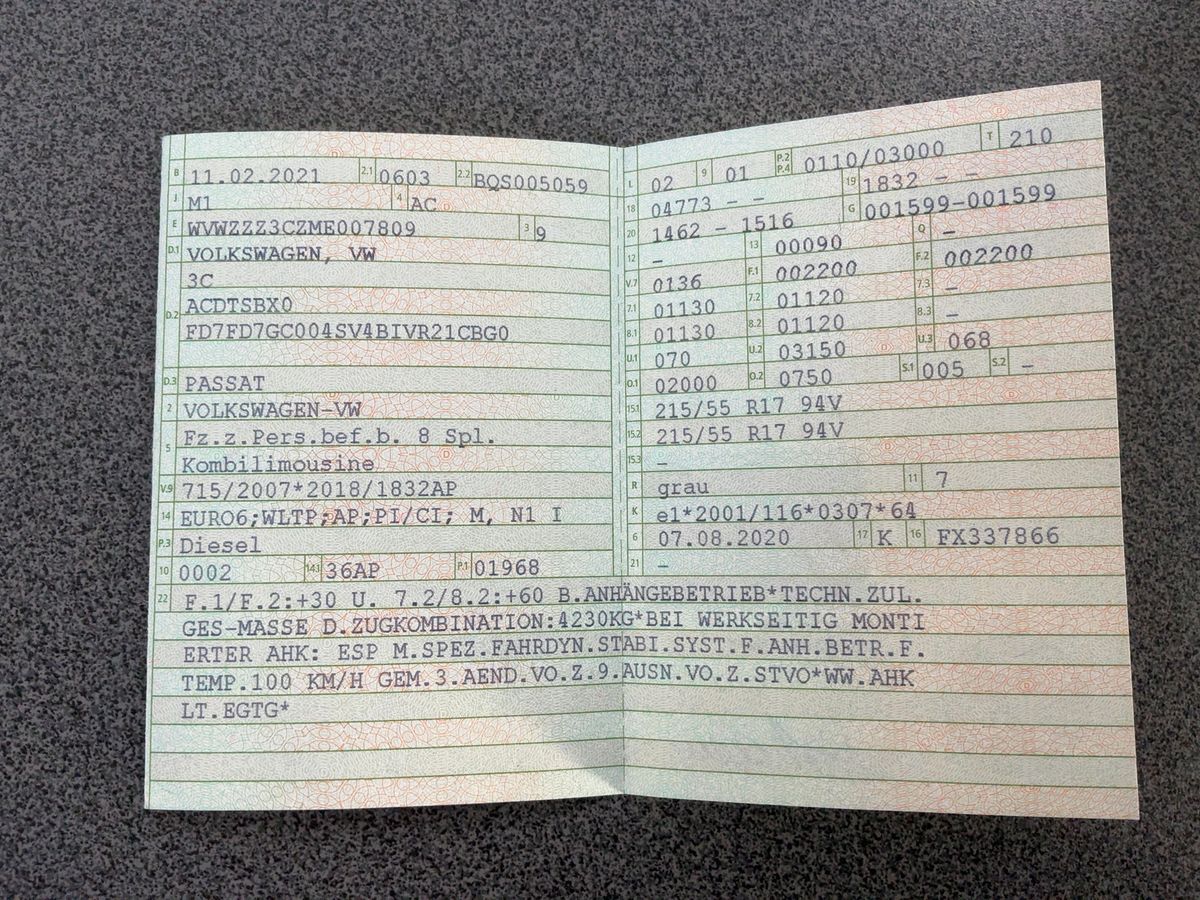 B 11.02.2021 2.1 0603 2.2 BQS005059
J M1 4 AC
E WVWZZZ3CZME007809 3 9
D.1 VOLKSWAGEN, VW
3C
D.2 ACDTSBX0
FD7FD7GC004SV4BIVR21CBG0
D.3 PASSAT
2 VOLKSWAGEN-VW
5 Fz.z.Pers.bef.b. 8 Spl.
Kombilimousine
V.9 715/2007*2018/1832AP
14 EURO6;WLTP;AP;PI/CI; M, N1 I
P.3 Diesel
10 0002 14.1 36AP P.1 01968
L 02 9 01 P.2 P.4 0110/03000 T 210
18 04773 - - 19 1832 - -
20 1462 - 1516 G 001599-001599
12 - 13 00090 Q -
V.7 0136 F.1 002200 F.2 002200
7.1 01130 7.2 01120 7.3 -
8.1 01130 8.2 01120 8.3 -
U.1 070 U.2 03150 U.3 068
O.1 02000 O.2 0750 S.1 005 S.2 -
15.1 215/55 R17 94V
15.2 215/55 R17 94V
15.3 -
R grau 11 7
K e1*2001/116*0307*64
6 07.08.2020 17 K 16 FX337866
21 -
22 F.1/F.2:+30 U. 7.2/8.2:+60 B.ANHÄNGEBETRIEB*TECHN.ZUL.
GES-MASSE D.ZUGKOMBINATION:4230KG*BEI WERKSEITIG MONTI
ERTER AHK: ESP M.SPEZ.FAHRDYN.STABI.SYST.F.ANH.BETR.F.
TEMP.100 KM/H GEM.3.AEND.VO.Z.9.AUSN.VO.Z.STVO*WW.AHK
LT.EGTG*